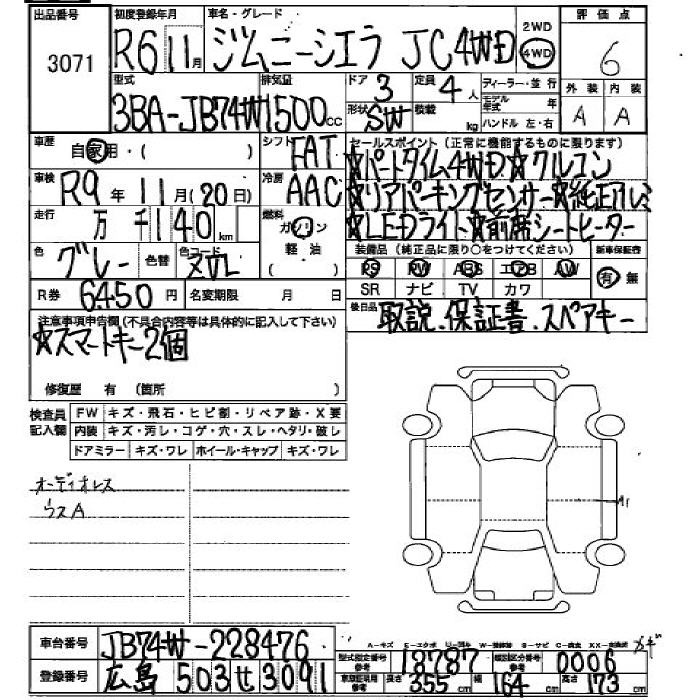 出品番号 初度登録年月 車名・グレード 2WD 4WD 評価点
3071 R6 11月 ジムニーシエラ JC4WD 6
型式 排気量 ドア 3 定員 4人 ディーラー・並行 外装 内装
3BA-JB74W 1500cc 形状 SW 積載 kg モデル年式 年 ハンドル 左・右 A A
車歴 自家用・( ) シフト FAT セールスポイント(正常に機能するものに限ります)
☆パートタイム4WD☆クルコン
車検 R9年11月(20日) 冷房 AAC ☆リアパーキングセンサー☆純正アルミ
走行 万 千 140km 燃料 ガソリン 軽・油 ( ) ☆LEDライト☆前席シートヒーター
色 グレー 色替 色コード ZVL 装備品(純正品に限り○をつけてください) 新車保証書
PS PW ABS エアB AW 有 無
R券 6450円 名変期限 月 日 SR ナビ TV カワ
注意事項申告欄(不具合内容等は具体的に記入して下さい) 後日品 取説、保証書、スペアキー
☆スマートキー2個
修復歴 有 (箇所 )
検査員記入欄 FW キズ・飛石・ヒビ割・リペア跡・X要
内装 キズ・汚レ・コゲ・穴・スレ・ヘタリ・破レ
ドアミラー キズ・ワレ ホイール・キャップ キズ・ワレ
オーディオレス
ウスA
A1
車台番号 JB74W-228476
A-キズ E-エクボ U-凹ル W-補修跡 S-サビ C-腐食 XX-交換済
型式指定番号 参考 18787 類別区分番号 参考 0006
登録番号 広島 503 せ 3091 車庫証明用 参考 長さ 355cm 幅 164cm 高さ 173cm